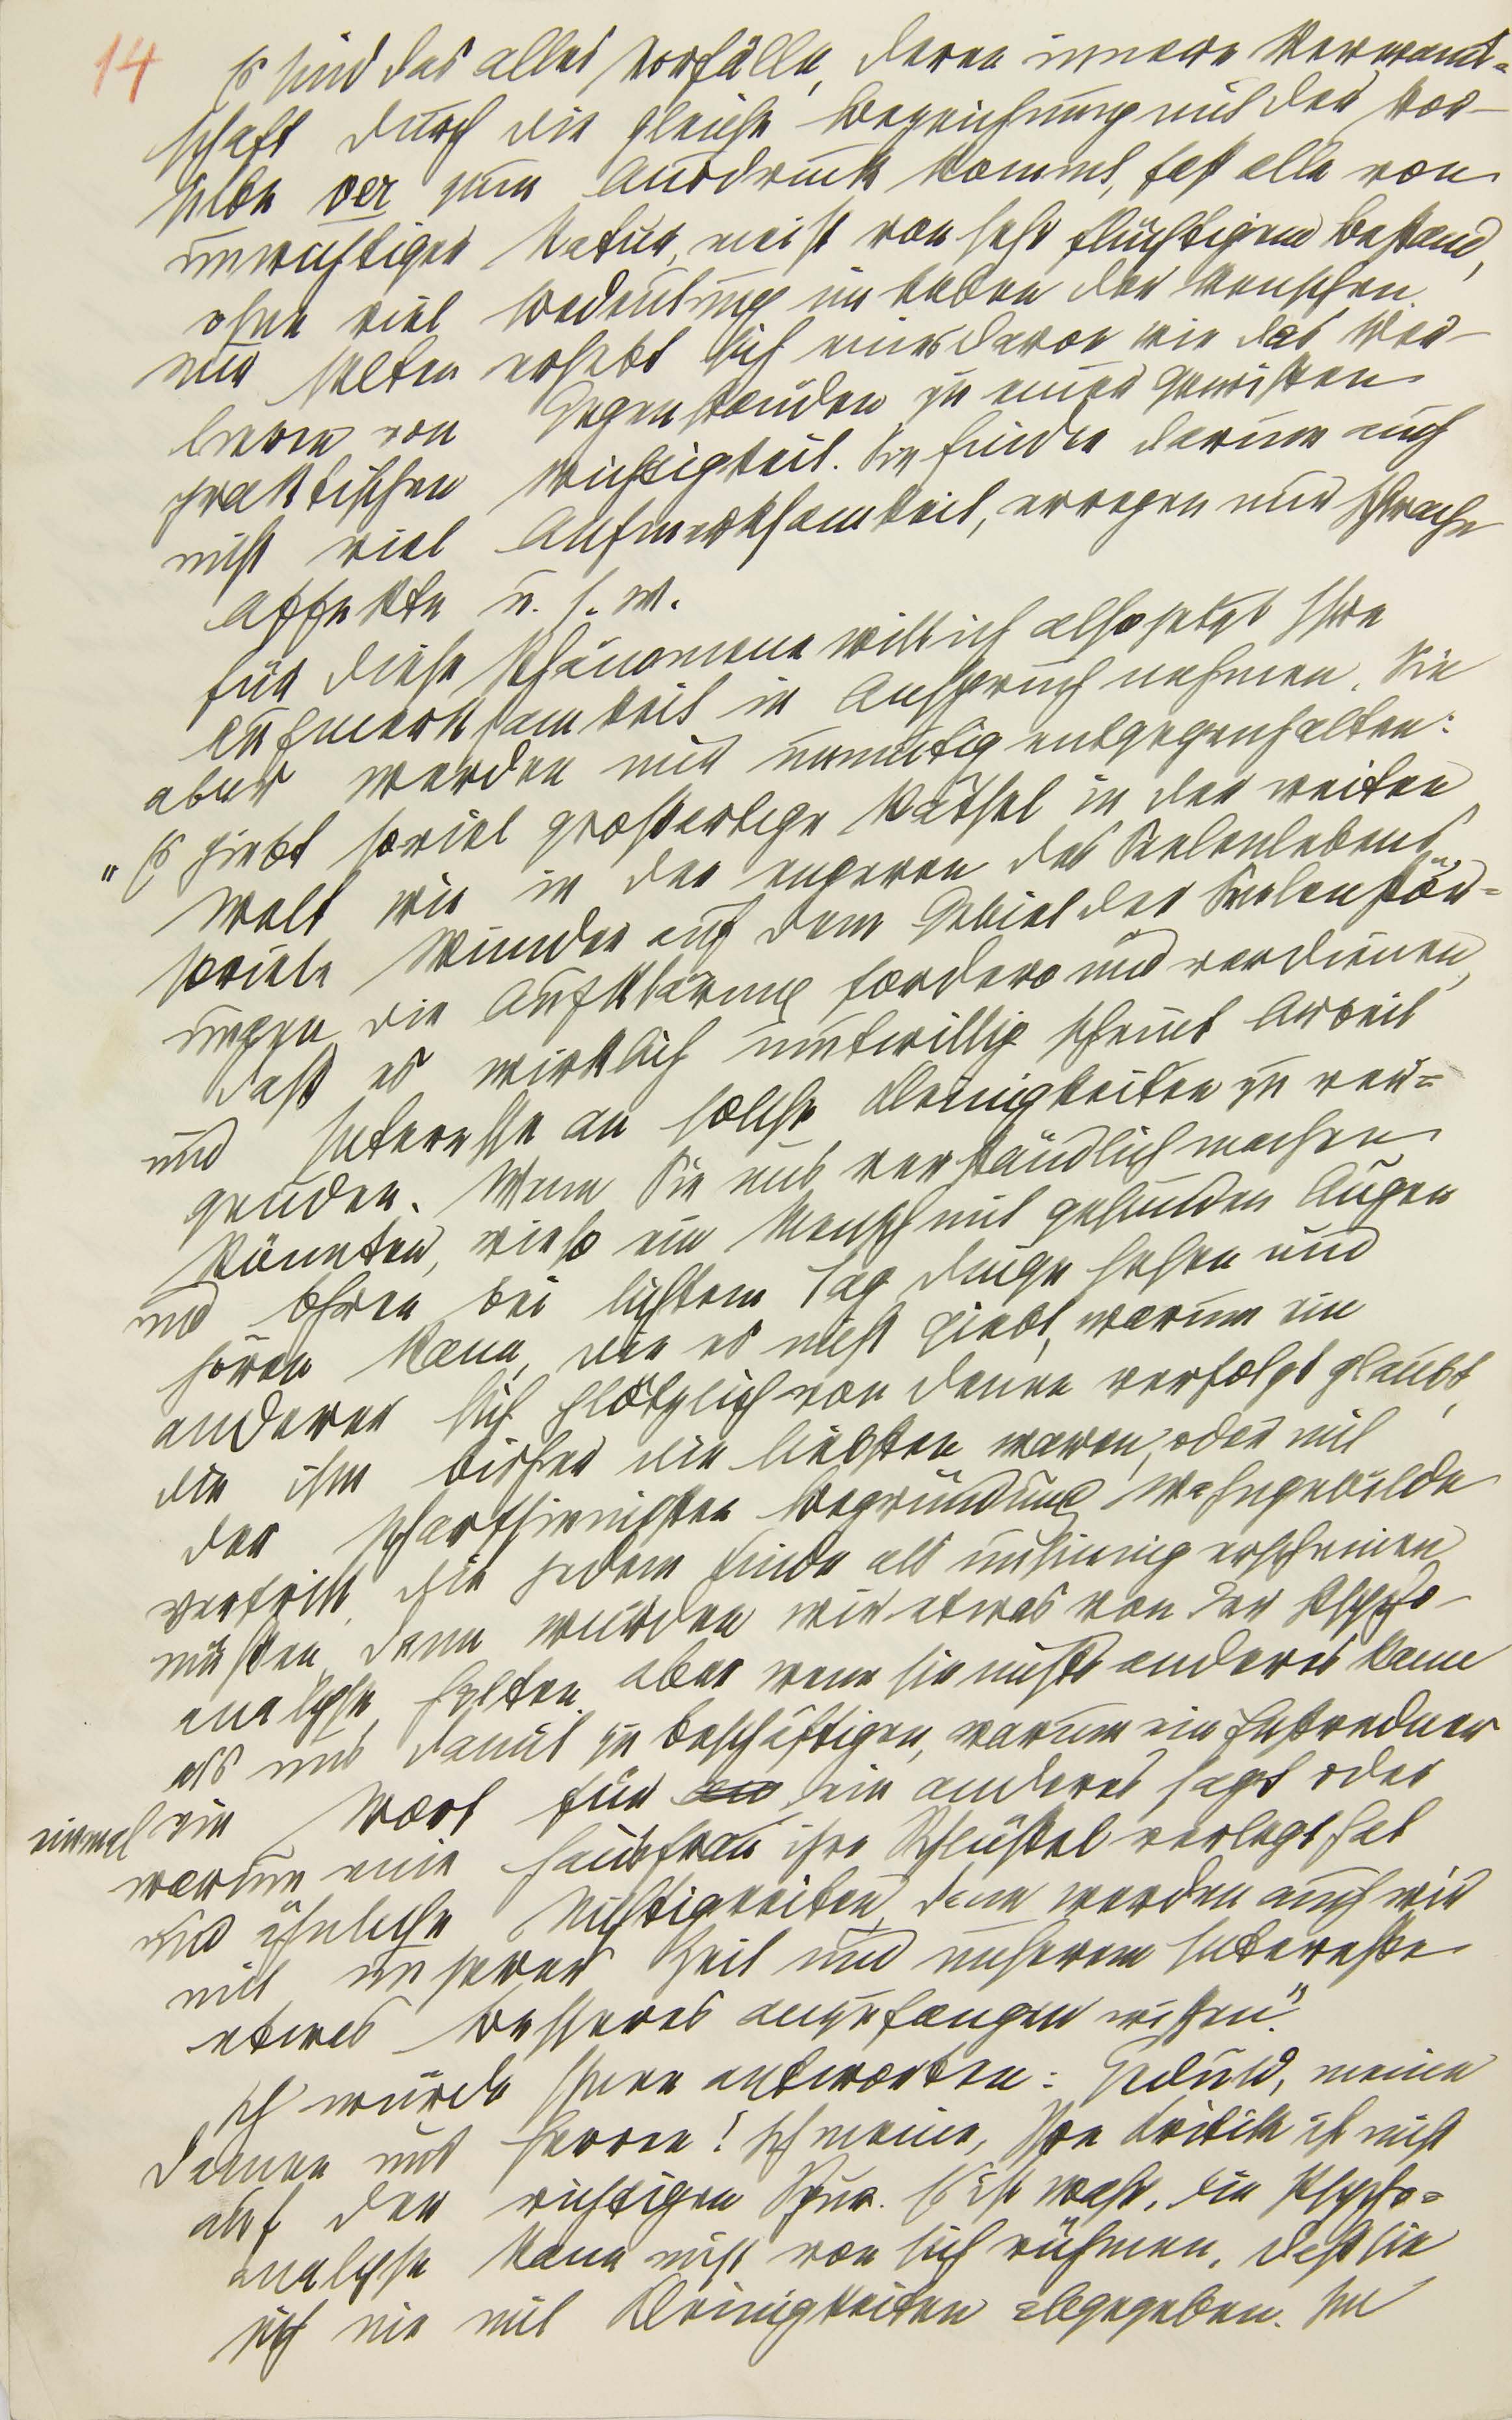 14
Es sind das alles Vorfälle, deren innere Verwandt=
schaft durch die gleiche Bezeichnung mit der Vor-
silbe ver zum Ausdruck kommt, fast alle von
unwichtiger Natur, meist von sehr flüchtigem Bestand,
ohne viel Bedeutung im Leben der Menschen.
Nur selten erhebt sich eines davon wie das Ver-
lieren von Gegenständen zu einer gewissen
praktischen Wichtigkeit. Sie finden darum auch
nicht viel Aufmerksamkeit, erregen nur schwache
Affekte u. s. w.
Für diese Phänomene will ich also jetzt Ihre
Aufmerksamkeit in Anspruch nehmen. Sie
aber werden mir unmutig entgegenhalten:
„Es giebt soviel großartige Rätsel in der weiten
Welt wie in der engeren des Seelenlebens,
soviele Wunder auf dem Gebiet der Seelenstör=
ungen, die Aufklärung fordern und verdienen,
daß es wirklich mutwillig scheint Arbeit
und Interesse an solche Kleinigkeiten zu ver=
geuden. Wenn Sie uns verständlich machen
könnten, wieso ein Mensch mit gesunden Augen
und Ohren bei lichtem Tag Dinge sehen und
hören kann, die es nicht giebt, warum ein
anderer sich plötzlich von denen verfolgt glaubt,
die ihm bisher die liebsten waren, oder mit
der scharfsinnigsten Begründung Wahngebilde
vertritt, die jedem Kinde als unsinnig erscheinen
müßten, dann würden wir etwas von der Psycho-
analyse halten, aber wenn sie nichts anderes kann
als uns damit zu beschäftigen, warum ein Festredner
einmal ein Wort für ein anderes sagt oder
warum eine Hausfrau ihre Schlüssel verlegt hat
und ähnliche Nichtigkeiten, dann werden auch wir
mit unserer Zeit und unserem Interesse
etwas Besseres anzufangen wissen".
Ich würde Ihnen antworten: Geduld, meine
Damen und Herren! Ich meine, Ihre Kritik ist nicht
auf der richtigen Spur. Es ist wahr, die Psycho=
analyse kann nicht von sich rühmen, daß sie
sich nie mit Kleinigkeiten abgegeben. Im